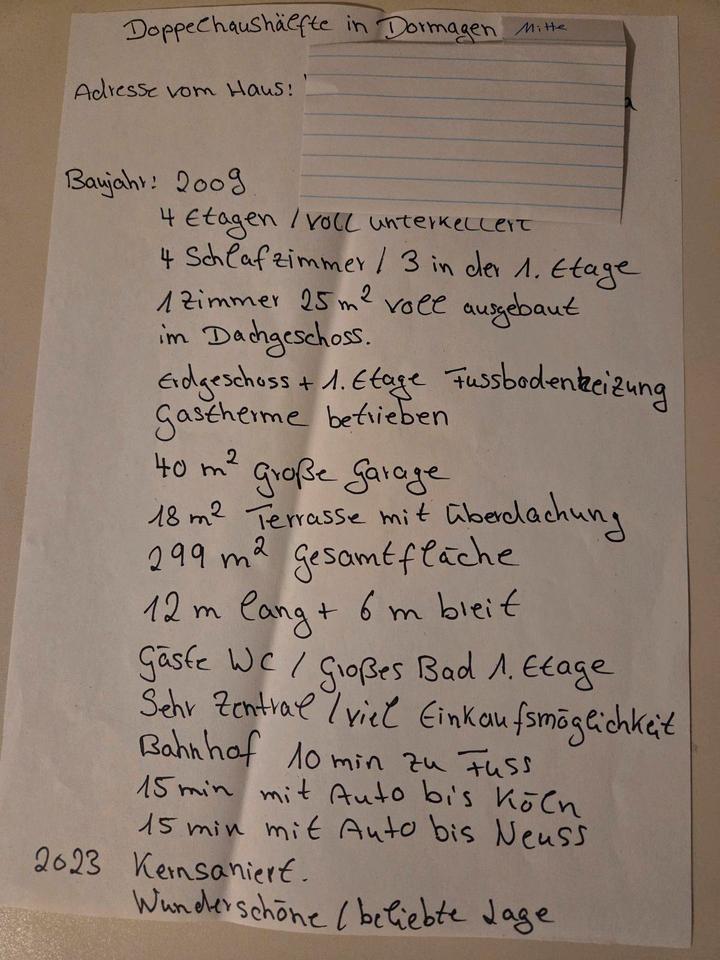 Doppelhaushälfte in Dormagen Mitte
Adresse vom Haus:
Baujahr: 2009
4 Etagen / voll unterkellert
4 Schlafzimmer / 3 in der 1. Etage
1 Zimmer 25 m² voll ausgebaut
im Dachgeschoss.
Erdgeschoss + 1. Etage Fussbodenheizung
Gastherme betrieben
40 m² große Garage
18 m² Terrasse mit Überdachung
299 m² Gesamtfläche
12 m lang + 6 m bleit
Gäste WC / Großes Bad 1. Etage
Sehr Zentral / viel Einkaufsmöglichkeit
Bahnhof 10 min zu Fuss
15 min mit Auto bis Köln
15 min mit Auto bis Neuss
2023 Kernsaniert.
Wunderschöne / beliebte Lage